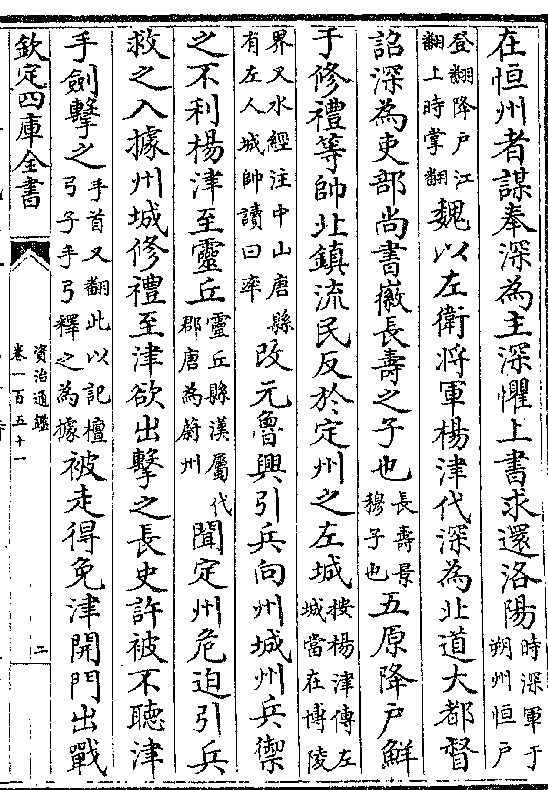 在恒州者謀奉深為主深懼上書求還洛陽時深軍于朔州恒戶
登翻降戶江翻上時掌翻魏以左衛將軍楊津代深為北道大都督
詔深為吏部尚書徽長壽之子也長壽景穆子也五原降戶鮮
于修禮等帥北鎮流民反於定州之左城按楊津傳左城當在博陵
界又水經注中山唐縣有左人城帥讀曰率改元魯興引兵向州城州兵禦
之不利楊津至靈丘靈丘縣漢屬代郡唐為蔚州聞定州危迫引兵
救之入據州城修禮至津欲出擊之長史許被不聽津
手劍擊之手首又翻此以記檀弓子手弓釋之為據被走得免津開門出戰
欽定四庫全書
資治通鑑
卷一百五十一
二